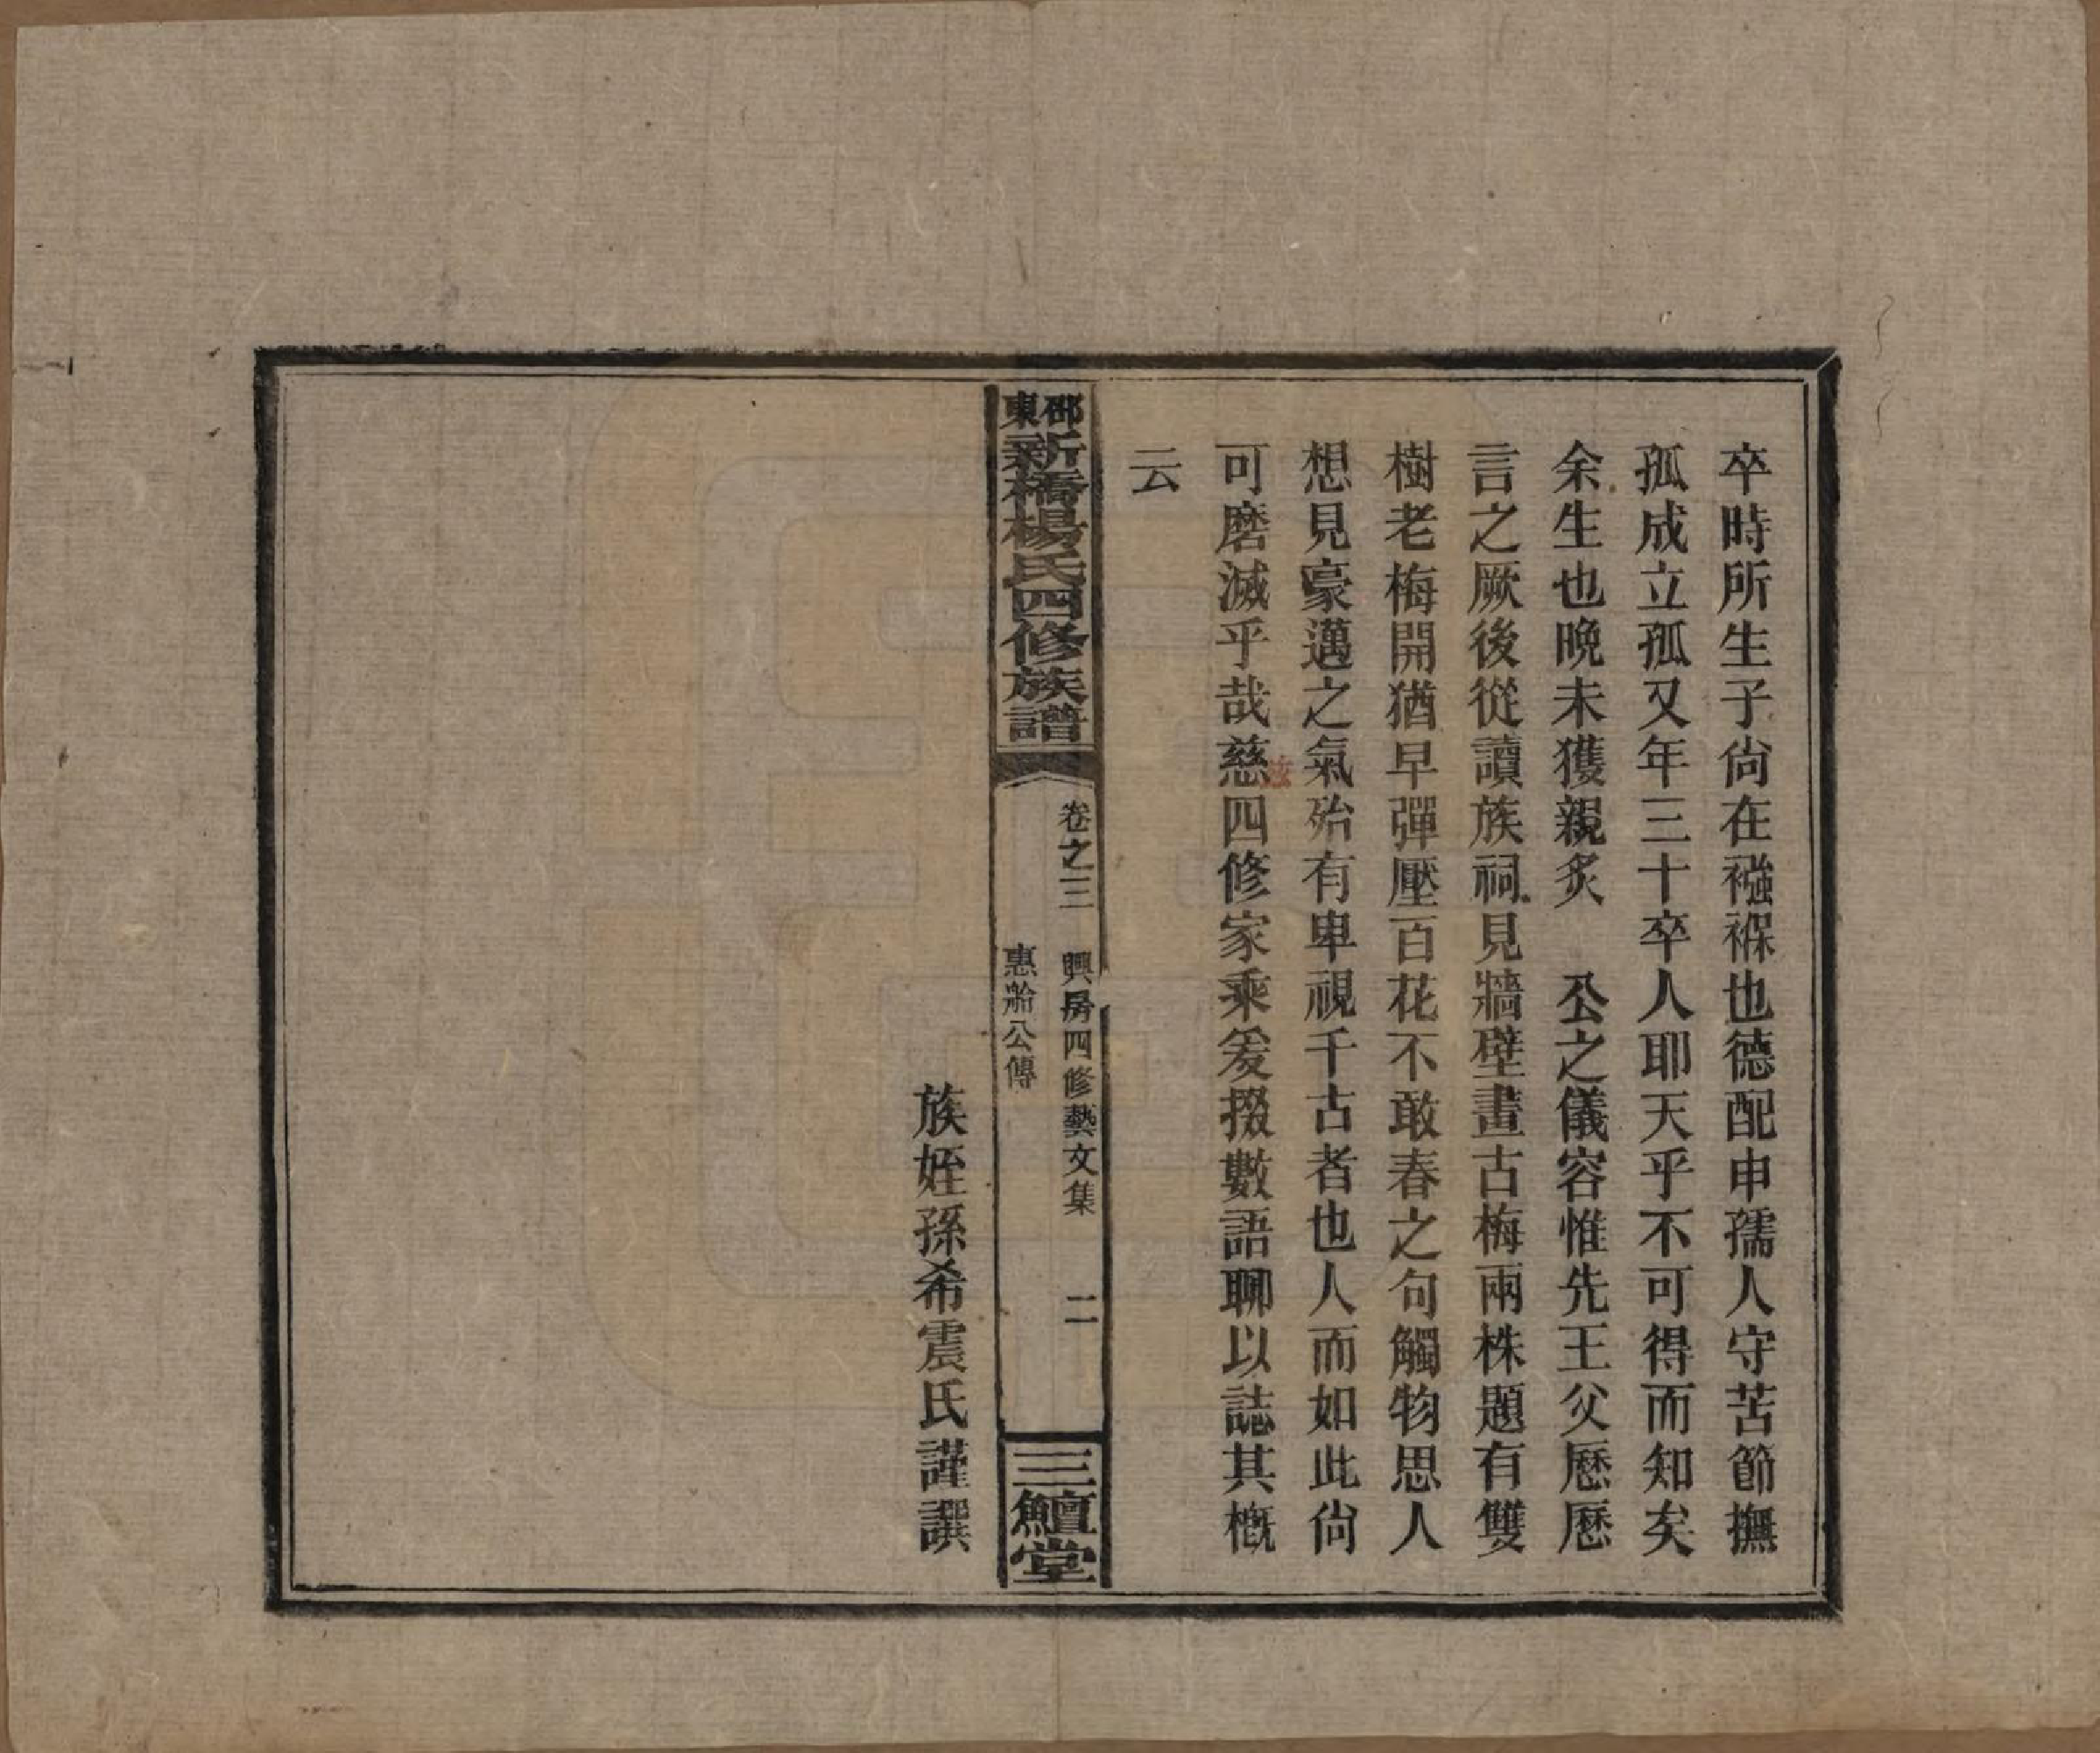 卒時所生子尙在襁褓也德配申孺人守苦節撫
孤成立孤又年三十卒人耶天乎不可得而知矣
余生也晩未獲親炙　公之儀容惟先王父歷歷
言之厥後從讀族祠見牆壁畫古梅兩株題有雙
樹老梅開猶早彈壓百花不敢春之句觸物思人
想見豪邁之氣殆有卑視千古者也人而如此尙
可磨滅乎哉慈四修家乘爰掇數語聊以誌其槪
兹
云
邵東新橋楊氏四修族譜
卷之三　興房四修藝文集　二
惠舲公傳
三鱣堂
族姪孫希震氏謹譔